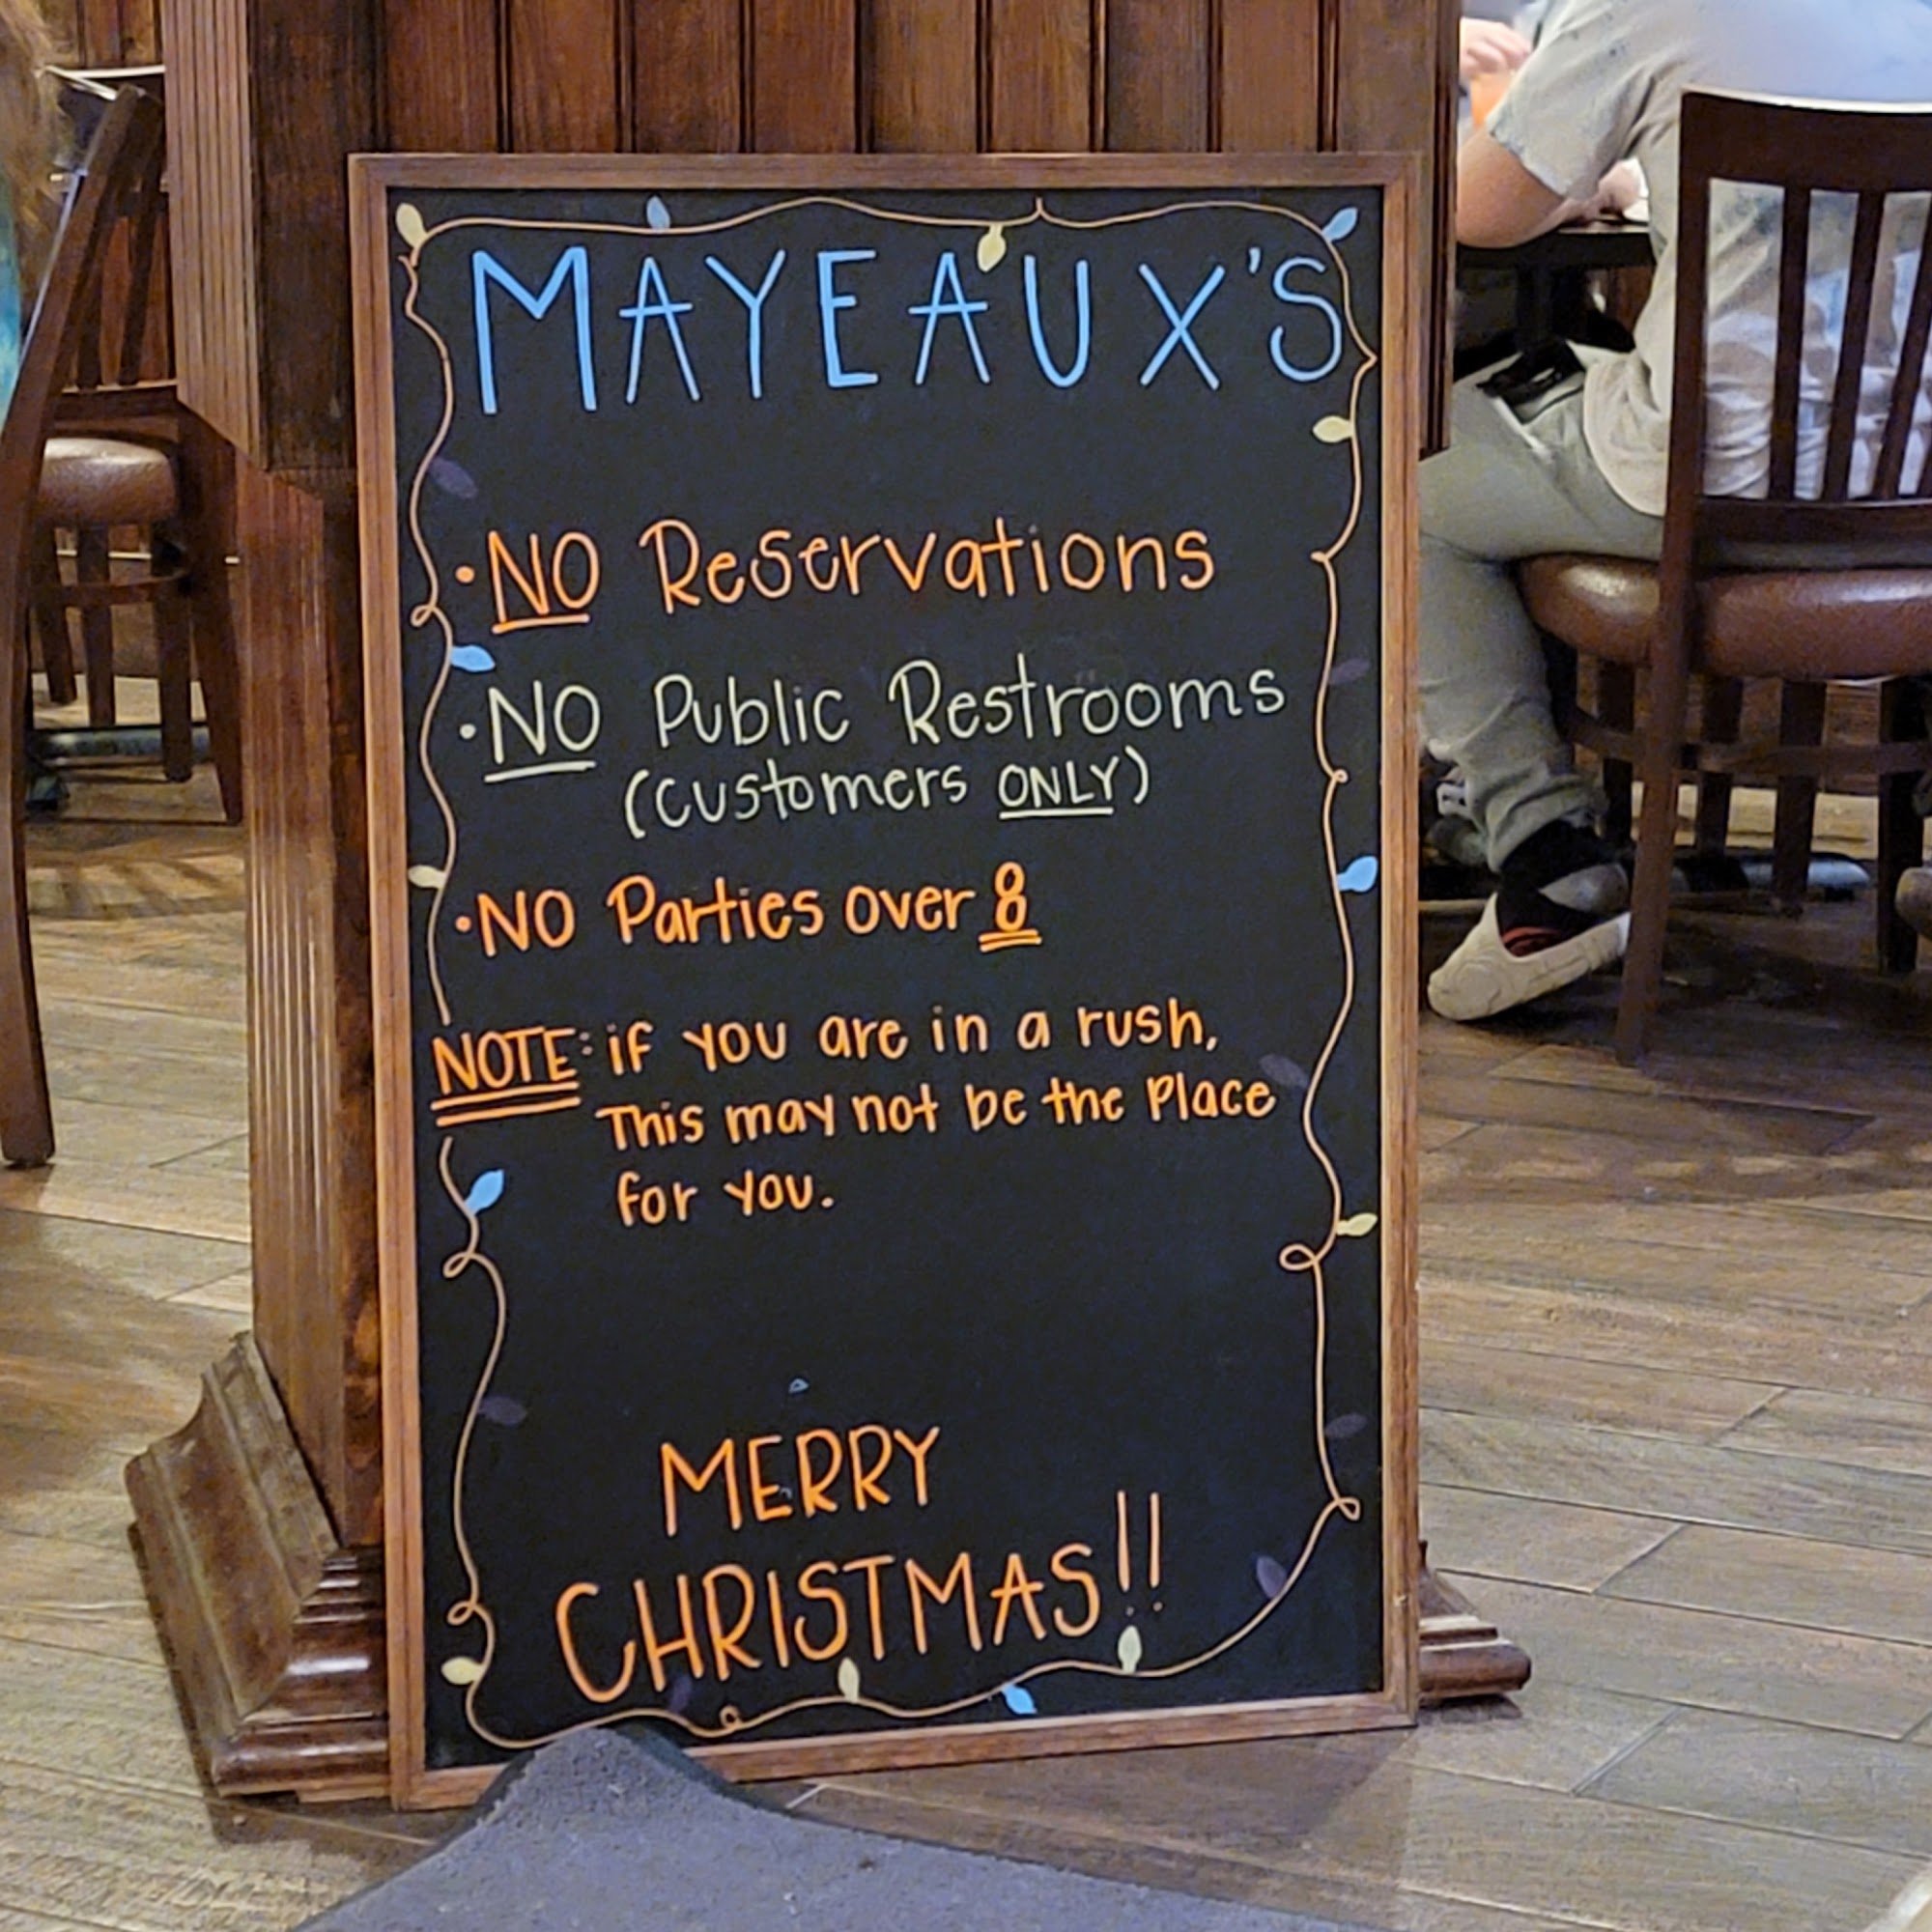 MAYEAUX'S
• NO Reservations
• NO Public Restrooms
(Customers ONLY)
• NO Parties over 8
NOTE: if you are in a rush,
This may not be the Place
for you.
MERRY
CHRISTMAS!!